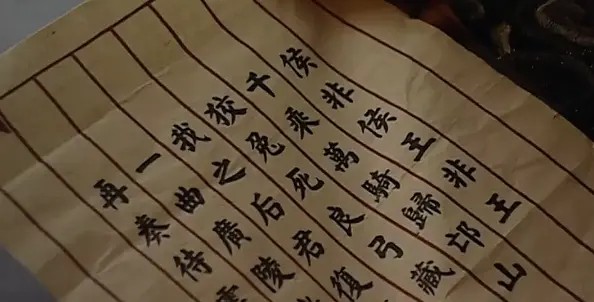 侯非侯王非王
千乘萬騎歸邙山
狡兔死良弓藏
我之后君復
一曲廣陵
再奏待